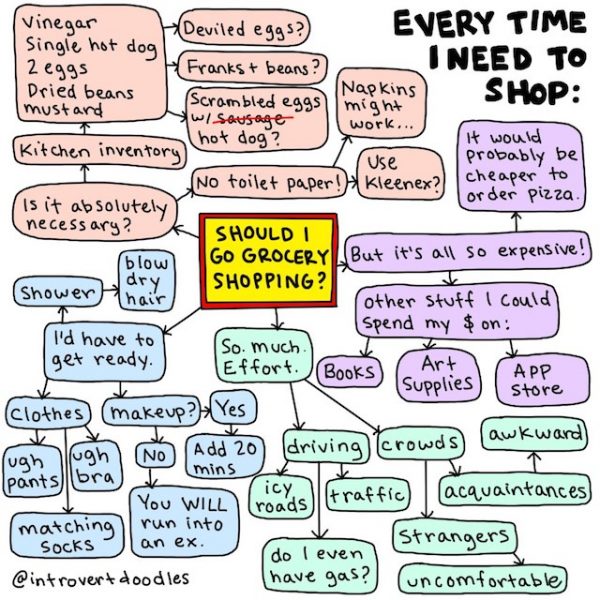 EVERY TIME
I NEED TO
SHOP:
Vinegar
Single hot dog
2 eggs
Dried beans
mustard
Deviled eggs?
Franks + beans?
Scrambled eggs
w/ sausage
hot dog?
Kitchen inventory
Napkins
might
work...
Use
Kleenex?
No toilet paper!
Is it absolutely
necessary?
SHOULD I
GO GROCERY
SHOPPING?
It would
probably be
cheaper to
order pizza.
But it's all so expensive!
other stuff I could
spend my $ on:
Books
Art
Supplies
APP
Store
Shower
blow
dry
hair
I'd have to
get ready.
clothes
ugh
pants
ugh
bra
matching
socks
makeup?
Yes
Add 20
mins
No
You WILL
run into
an ex.
So. much.
Effort.
driving
icy
roads
traffic
do I even
have gas?
crowds
awkward
acquaintances
strangers
uncomfortable
@introvertdoodles